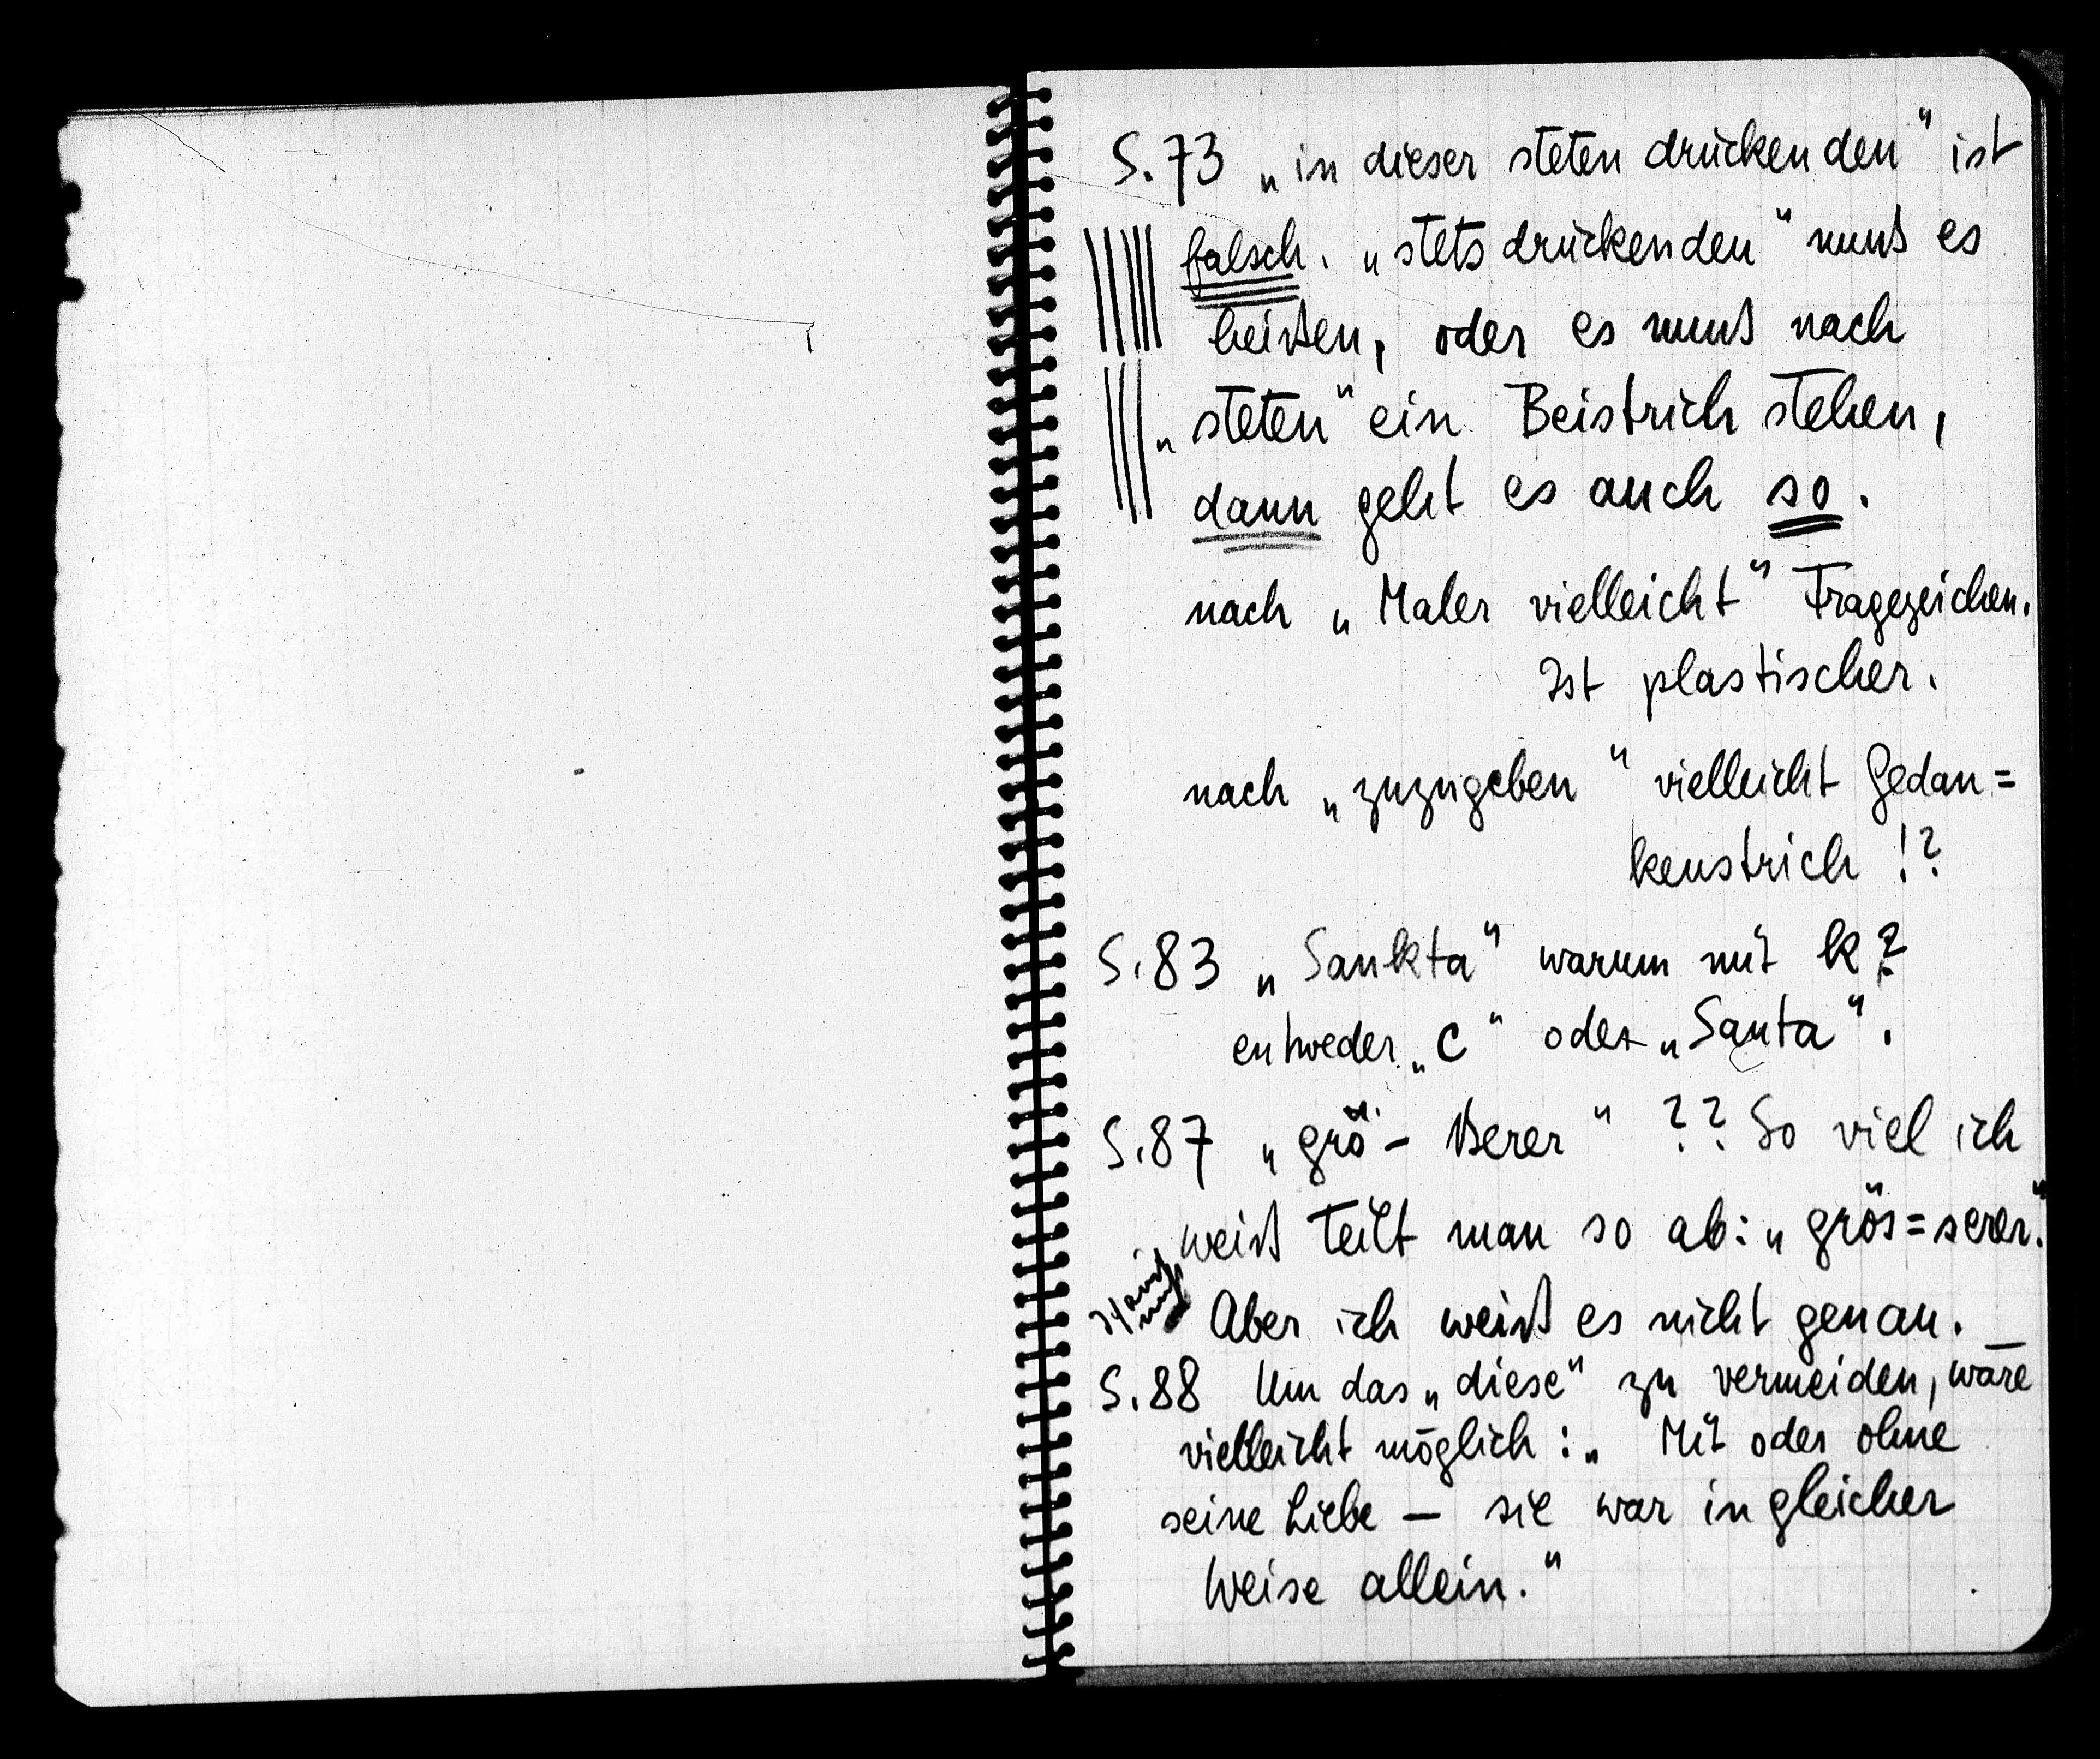 S. 73 „in dieser steten drückenden" ist
falsch. „stets drückenden" muß es
heißen, oder es muß nach
„steten" ein Beistrich stehen,
dann geht es auch so.
nach „Maler vielleicht" Fragezeichen.
Ist plastischer.
nach „zuzugeben" vielleicht Gedan=
kenstrich !?
S. 83 „Sankta" warum mit k?
entweder „c" oder „Santa".
S. 87 „grö- ßerer" ?? So viel ich
weiß teilt man so ab: „grös=serer."
Aber ich weiß es nicht genau.
S. 88 Um das „diese" zu vermeiden, wäre
vielleicht möglich: „Mit oder ohne
seine Liebe — sie war in gleicher
Weise allein."